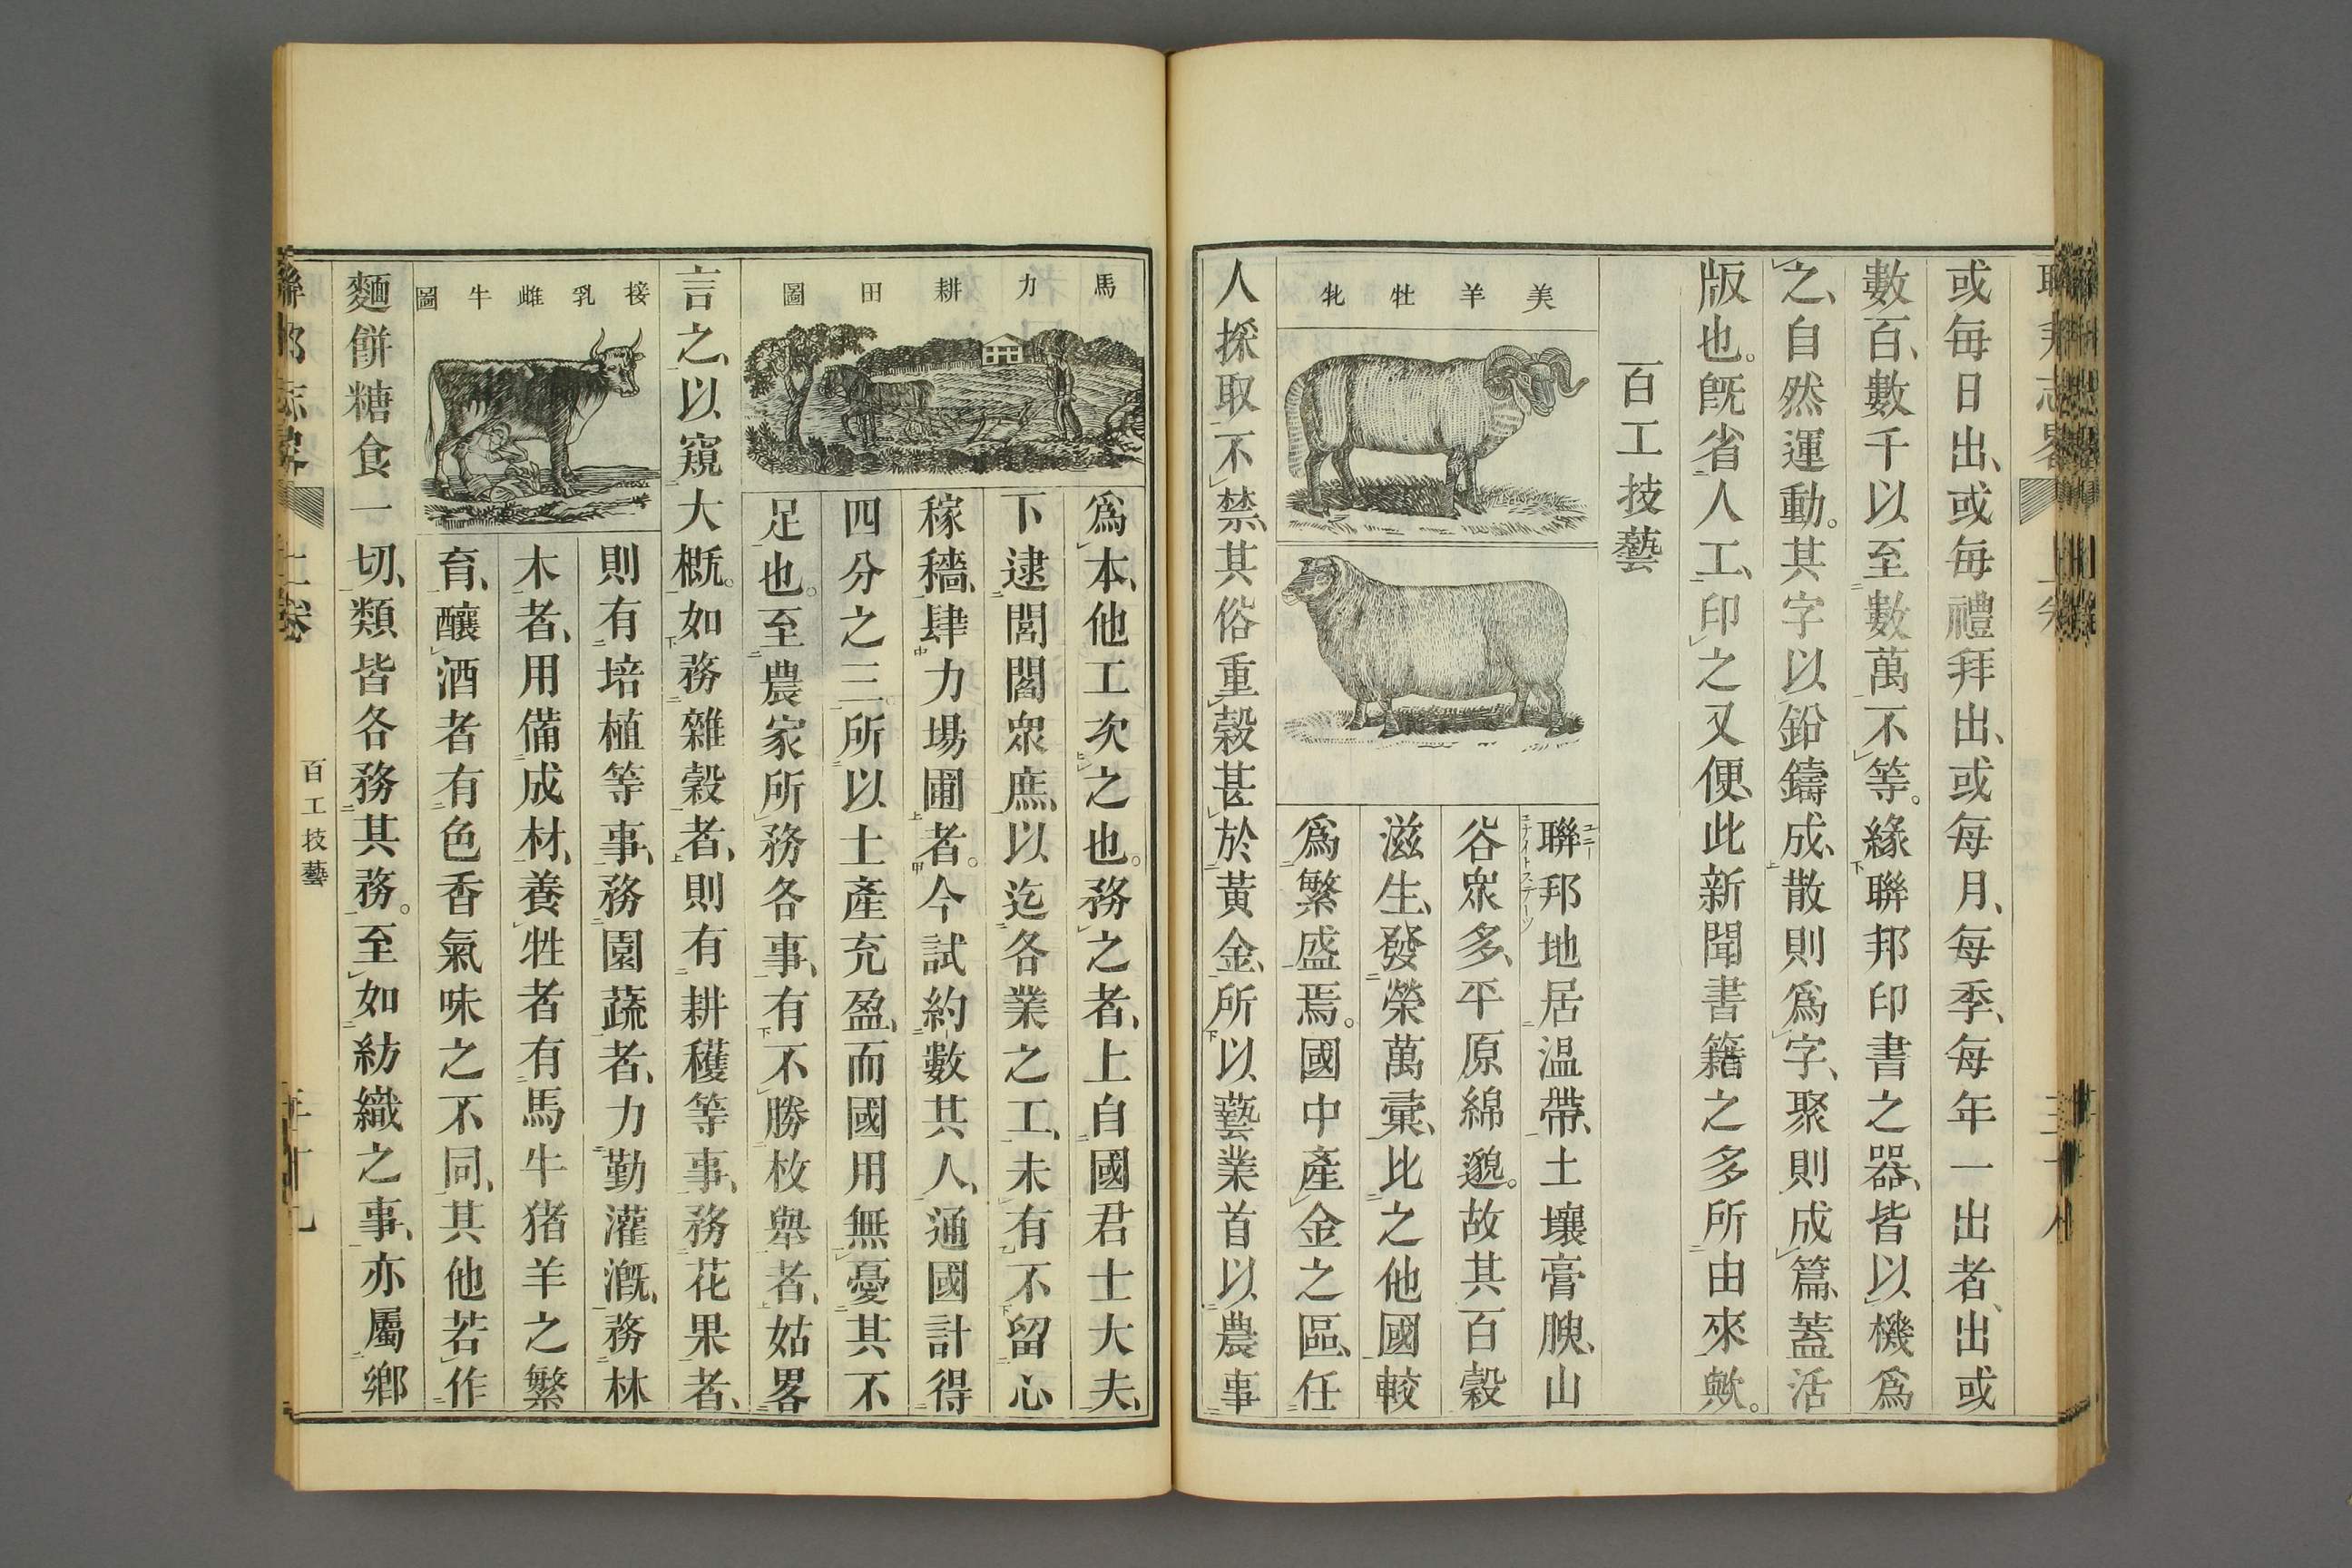 或每日出、或每禮拜出、或每月、每季、每年一出者、出或
數百、數千以至數萬不等。緣聯邦印書之器、皆以機爲
之、自然運動。其字以鉛鑄成、散則爲字、聚則成篇、蓋活
版也。旣省人工、印之又便、此新聞書籍之多所由來歟。
百工技藝
美羊牡牝
聯邦地居温帶、土壤膏腴、山
ユニー
エナイトステーツ
谷衆多、平原綿邈。故其百穀
滋生、發榮萬彙、比之他國較
爲繁盛焉。國中產金之區、任
人採取不禁、其俗重穀甚於黃金、所以藝業首以農事
馬力耕田圖
爲本、他工次之也。務之者、上自國君士大夫、
下逮閭閻衆庶、以迄各業之工、未有不留心
稼穡、肆力場圃者。今試約數其人、通國計得
四分之三。所以土產充盈、而國用無憂其不
足也。至農家所務各事、有不勝枚舉者、姑畧
言之、以窺大概。如務雜穀者、則有耕穫等事、務花果者、
接乳雌牛圖
則有培植等事、務園蔬者、力勤灌漑、務林
木者、用備成材、養牲者有馬牛猪羊之繁
育、釀酒者有色香氣味之不同、其他若作
麵餅糖食一切、類皆各務其務。至如紡織之事、亦屬鄉
百工技藝